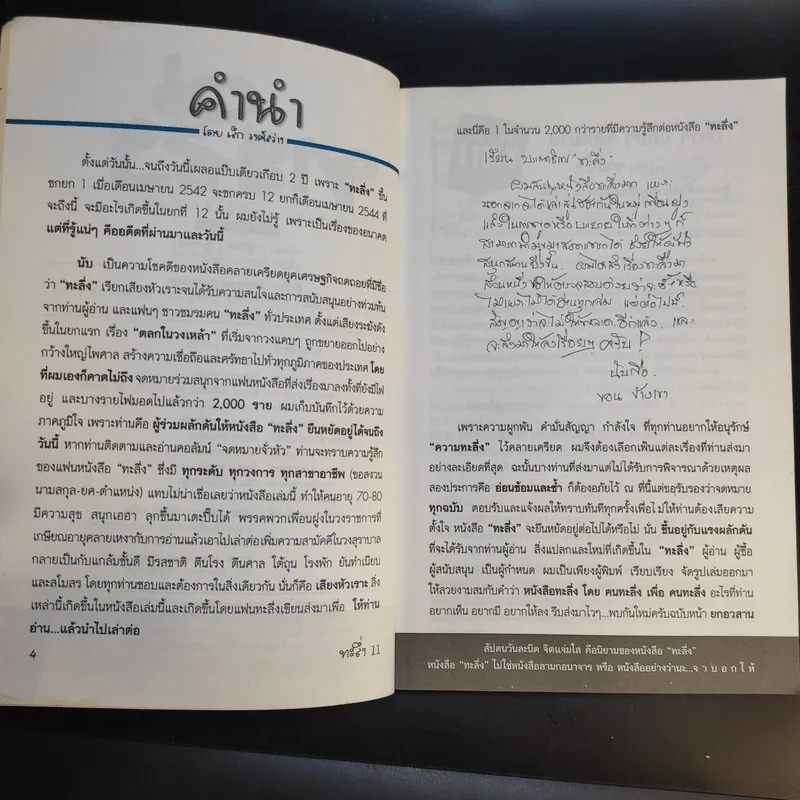 คำนำ
โดย เล็ก วงศ์สว่าง
ตั้งแต่วันนั้น...จนถึงวันนี้เผลอแป๊บเดียวเกือบ 2 ปี เพราะ "ทะลึ่ง" ขึ้น
ชกยก 1 เมื่อเดือนเมษายน 2542 จะชกครบ 12 ยกก็เดือนเมษายน 2544 ที่
จะถึงนี้ จะมีอะไรเกิดขึ้นในยกที่ 12 นั้น ผมยังไม่รู้ เพราะเป็นเรื่องของอนาคต
แต่ที่รู้แน่ๆ คืออดีตที่ผ่านมาและวันนี้
นับ เป็นความโชคดีของหนังสือคลายเครียดยุคเศรษฐกิจถดถอยที่มีชื่อ
ว่า "ทะลึ่ง" เรียกเสียงหัวเราะจนได้รับความสนใจและการสนับสนุนอย่างท่วมท้น
จากท่านผู้อ่าน และแฟนๆ ชาวชมรมคน "ทะลึ่ง" ทั่วประเทศ ตั้งแต่เสียงระฆังดัง
ขึ้นในยกแรก เรื่อง "ตลกในวงเหล้า" ที่เริ่มจากวงแคบๆ ถูกขยายออกไปอย่าง
กว้างใหญ่ไพศาล สร้างความเชื่อถือและศรัทธาไปทั่วทุกภูมิภาคของประเทศ โดย
ที่ผมเองก็คาดไม่ถึง จดหมายร่วมสนุกจากแฟนหนังสือที่ส่งเรื่องมาลงทั้งที่ยังมีไฟ
อยู่ และบางรายไฟมอดไปแล้วกว่า 2,000 ราย ผมเก็บบันทึกไว้ด้วยความ
ภาคภูมิใจ เพราะท่านคือ ผู้ร่วมผลักดันให้หนังสือ "ทะลึ่ง" ยืนหยัดอยู่ได้จนถึง
วันนี้ หากท่านติดตามและอ่านคอลัมน์ "จดหมายจั่วหัว" ท่านจะทราบความรู้สึก
ของแฟนหนังสือ "ทะลึ่ง" ซึ่งมี ทุกระดับ ทุกวงการ ทุกสาขาอาชีพ (ขอสงวน
นามสกุล-ยศ-ตำแหน่ง) แทบไม่น่าเชื่อเลยว่าหนังสือเล่มนี้ ทำให้คนอายุ 70-80
มีความสุข สนุกเฮฮา ลุกขึ้นมาเตะปี๊บได้ พรรคพวกเพื่อนฝูงในวงราชการที่
เกษียณอายุคลายเหงากับการอ่านแล้วเอาไปเล่าต่อเพิ่มความสามัคคีในวงสุราบาล
กลายเป็นกับแกล้มชั้นดี มีรสชาติ ตีนโรง ตีนศาล ใต้ถุน โรงพัก ยันทำเนียบ
และสโมสร โดยทุกท่านชอบและต้องการในสิ่งเดียวกัน นั่นก็คือ เสียงหัวเราะ สิ่ง
เหล่านี้เกิดขึ้นในหนังสือเล่มนี้และเกิดขึ้นโดยแฟนทะลึ่งเขียนส่งมาเพื่อ ให้ท่าน
อ่าน...แล้วนำไปเล่าต่อ
4
ทะลึ่ง 11
และนี่คือ 1 ในจำนวน 2,000 กว่ารายที่มีความรู้สึกต่อหนังสือ "ทะลึ่ง"
เรียน บรรณาธิการ "ทะลึ่ง"
เพราะความผูกพัน คำมั่นสัญญา กำลังใจ ที่ทุกท่านอยากให้อนุรักษ์
"ความทะลึ่ง" ไว้คลายเครียด ผมจึงต้องเลือกเฟ้นแต่ละเรื่องที่ท่านส่งมา
อย่างละเอียดที่สุด ฉะนั้นบางท่านที่ส่งมาแต่ไม่ได้รับการพิจารณาด้วยเหตุผล
สองประการคือ อ่อนซ้อมและช้ำ ก็ต้องอภัยไว้ ณ ที่นี้แต่ขอรับรองว่าจดหมาย
ทุกฉบับ ตอบรับและแจ้งผลให้ทราบทันทีทุกครั้งเพื่อไม่ให้ท่านต้องเสียความ
ตั้งใจ หนังสือ "ทะลึ่ง" จะยืนหยัดอยู่ต่อไปได้หรือไม่ นั่น ขึ้นอยู่กับแรงผลักดัน
ที่จะได้รับจากท่านผู้อ่าน สิ่งแปลกและใหม่ที่เกิดขึ้นใน "ทะลึ่ง" ผู้อ่าน ผู้ซื้อ
ผู้สนับสนุน เป็นผู้กำหนด ผมเป็นเพียงผู้พิมพ์ เรียบเรียง จัดรูปเล่มออกมา
ให้สวยงามสมกับคำว่า หนังสือทะลึ่ง โดย คนทะลึ่ง เพื่อ คนทะลึ่ง อะไรที่ท่าน
อยากเห็น อยากมี อยากให้ลง รีบส่งมาไวๆ...พบกันใหม่ครับฉบับหน้า ยกอวสาน
สัปดนวันละนิด จิตแจ่มใส คือนิยามของหนังสือ "ทะลึ่ง"
หนังสือ "ทะลึ่ง" ไม่ใช่หนังสือลามกอนาจาร หรือ หนังสืออย่างว่านะ...จ ว บ อ ก ใ ห้